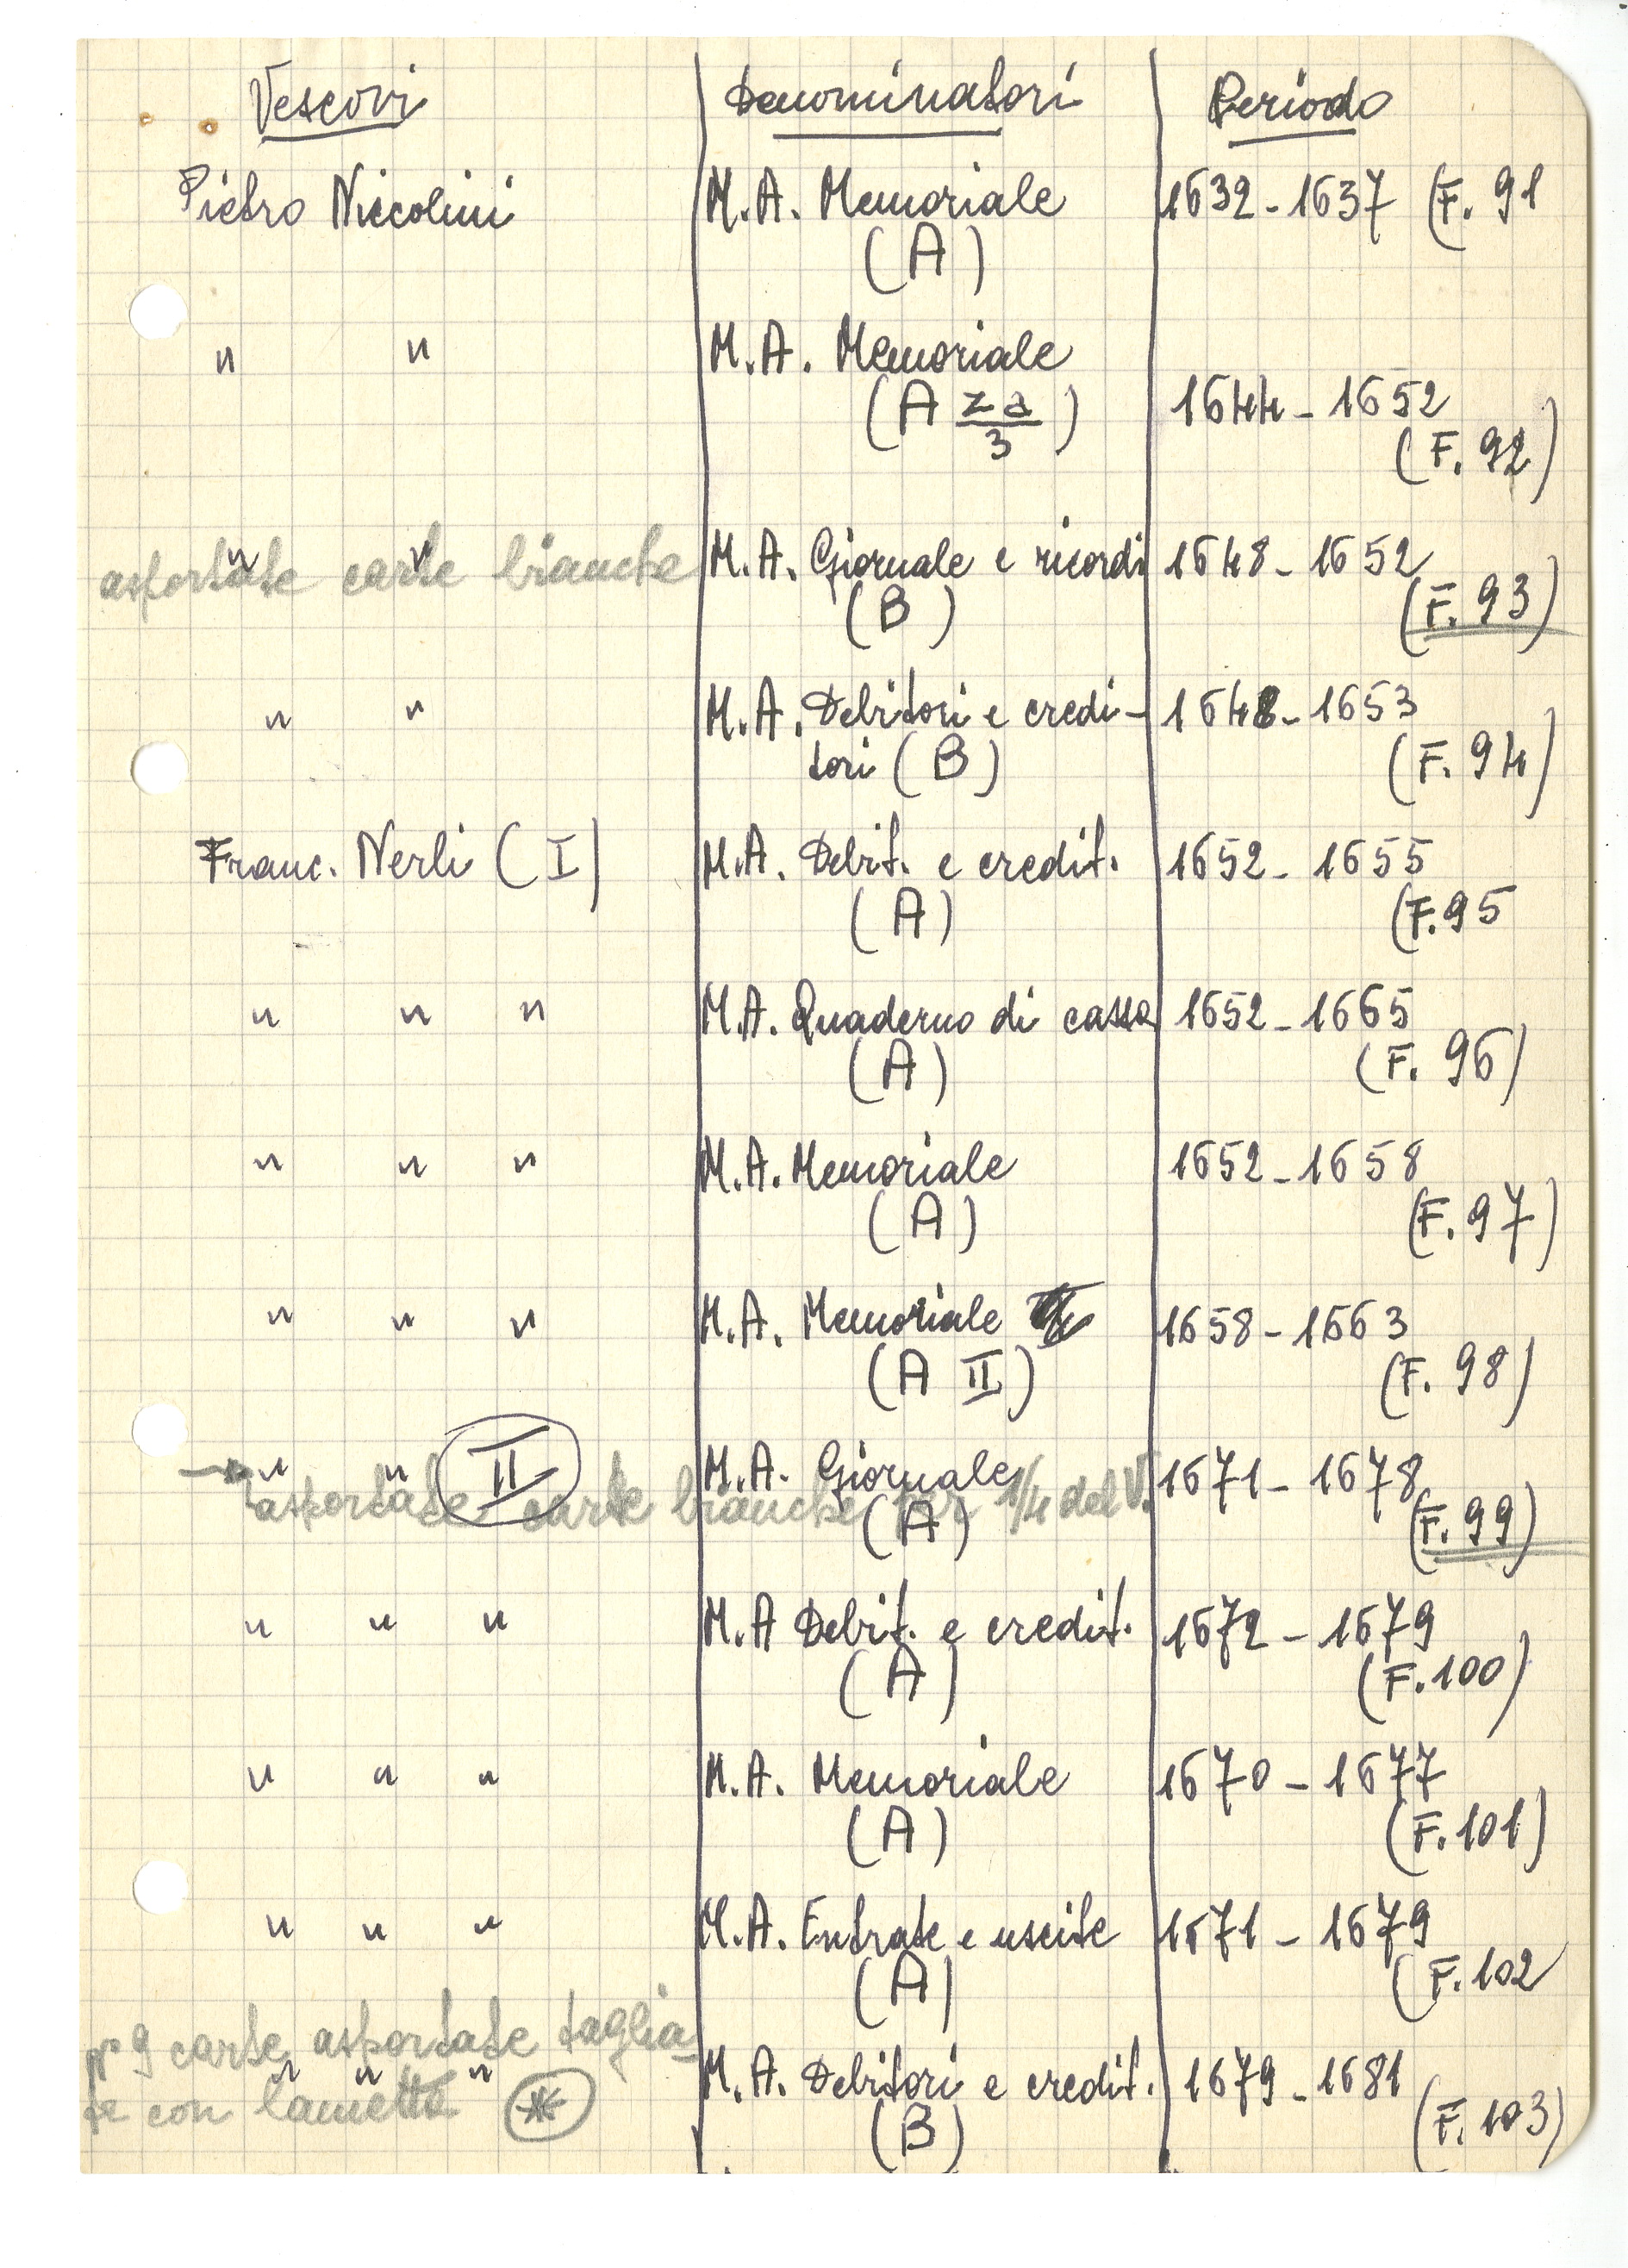 Vescovi Denominatori Periodo
Pietro Niccolini M.A. Memoriale 1632-1637 (F. 91
(A)
" " M.A. Memoriale
(A za/3) 1644-1652
(F. 92)
" " M.A. Giornale e ricordi 1648-1652
asportate carte bianche
(B) (F. 93)
" " M.A. Debitori e credi- 1648-1653
tori (B) (F. 94)
Franc. Nerli (I) M.A. Debit. e credit. 1652-1655
(A) (F. 95
" " " M.A. Quaderno di cassa 1652-1665
(A) (F. 96)
" " " M.A. Memoriale 1652-1658
(A) (F. 97)
" " " M.A. Memoriale 1658-1663
(A II) (F. 98)
" " II M.A. Giornale 1671-1678
asportate carte bianche per 1/4 del V.
(A) (F. 99)
" " " M.A Debit. e credit. 1672-1679
(A) (F. 100)
" " " M.A. Memoriale 1670-1677
(A) (F. 101)
" " " M.A. Entrate e uscite 1671-1679
(A) (F. 102
n° 9 carte asportate taglia-
" " " M.A. Debitori e credit. 1679-1681
te con lametta *
(B) (F. 103)